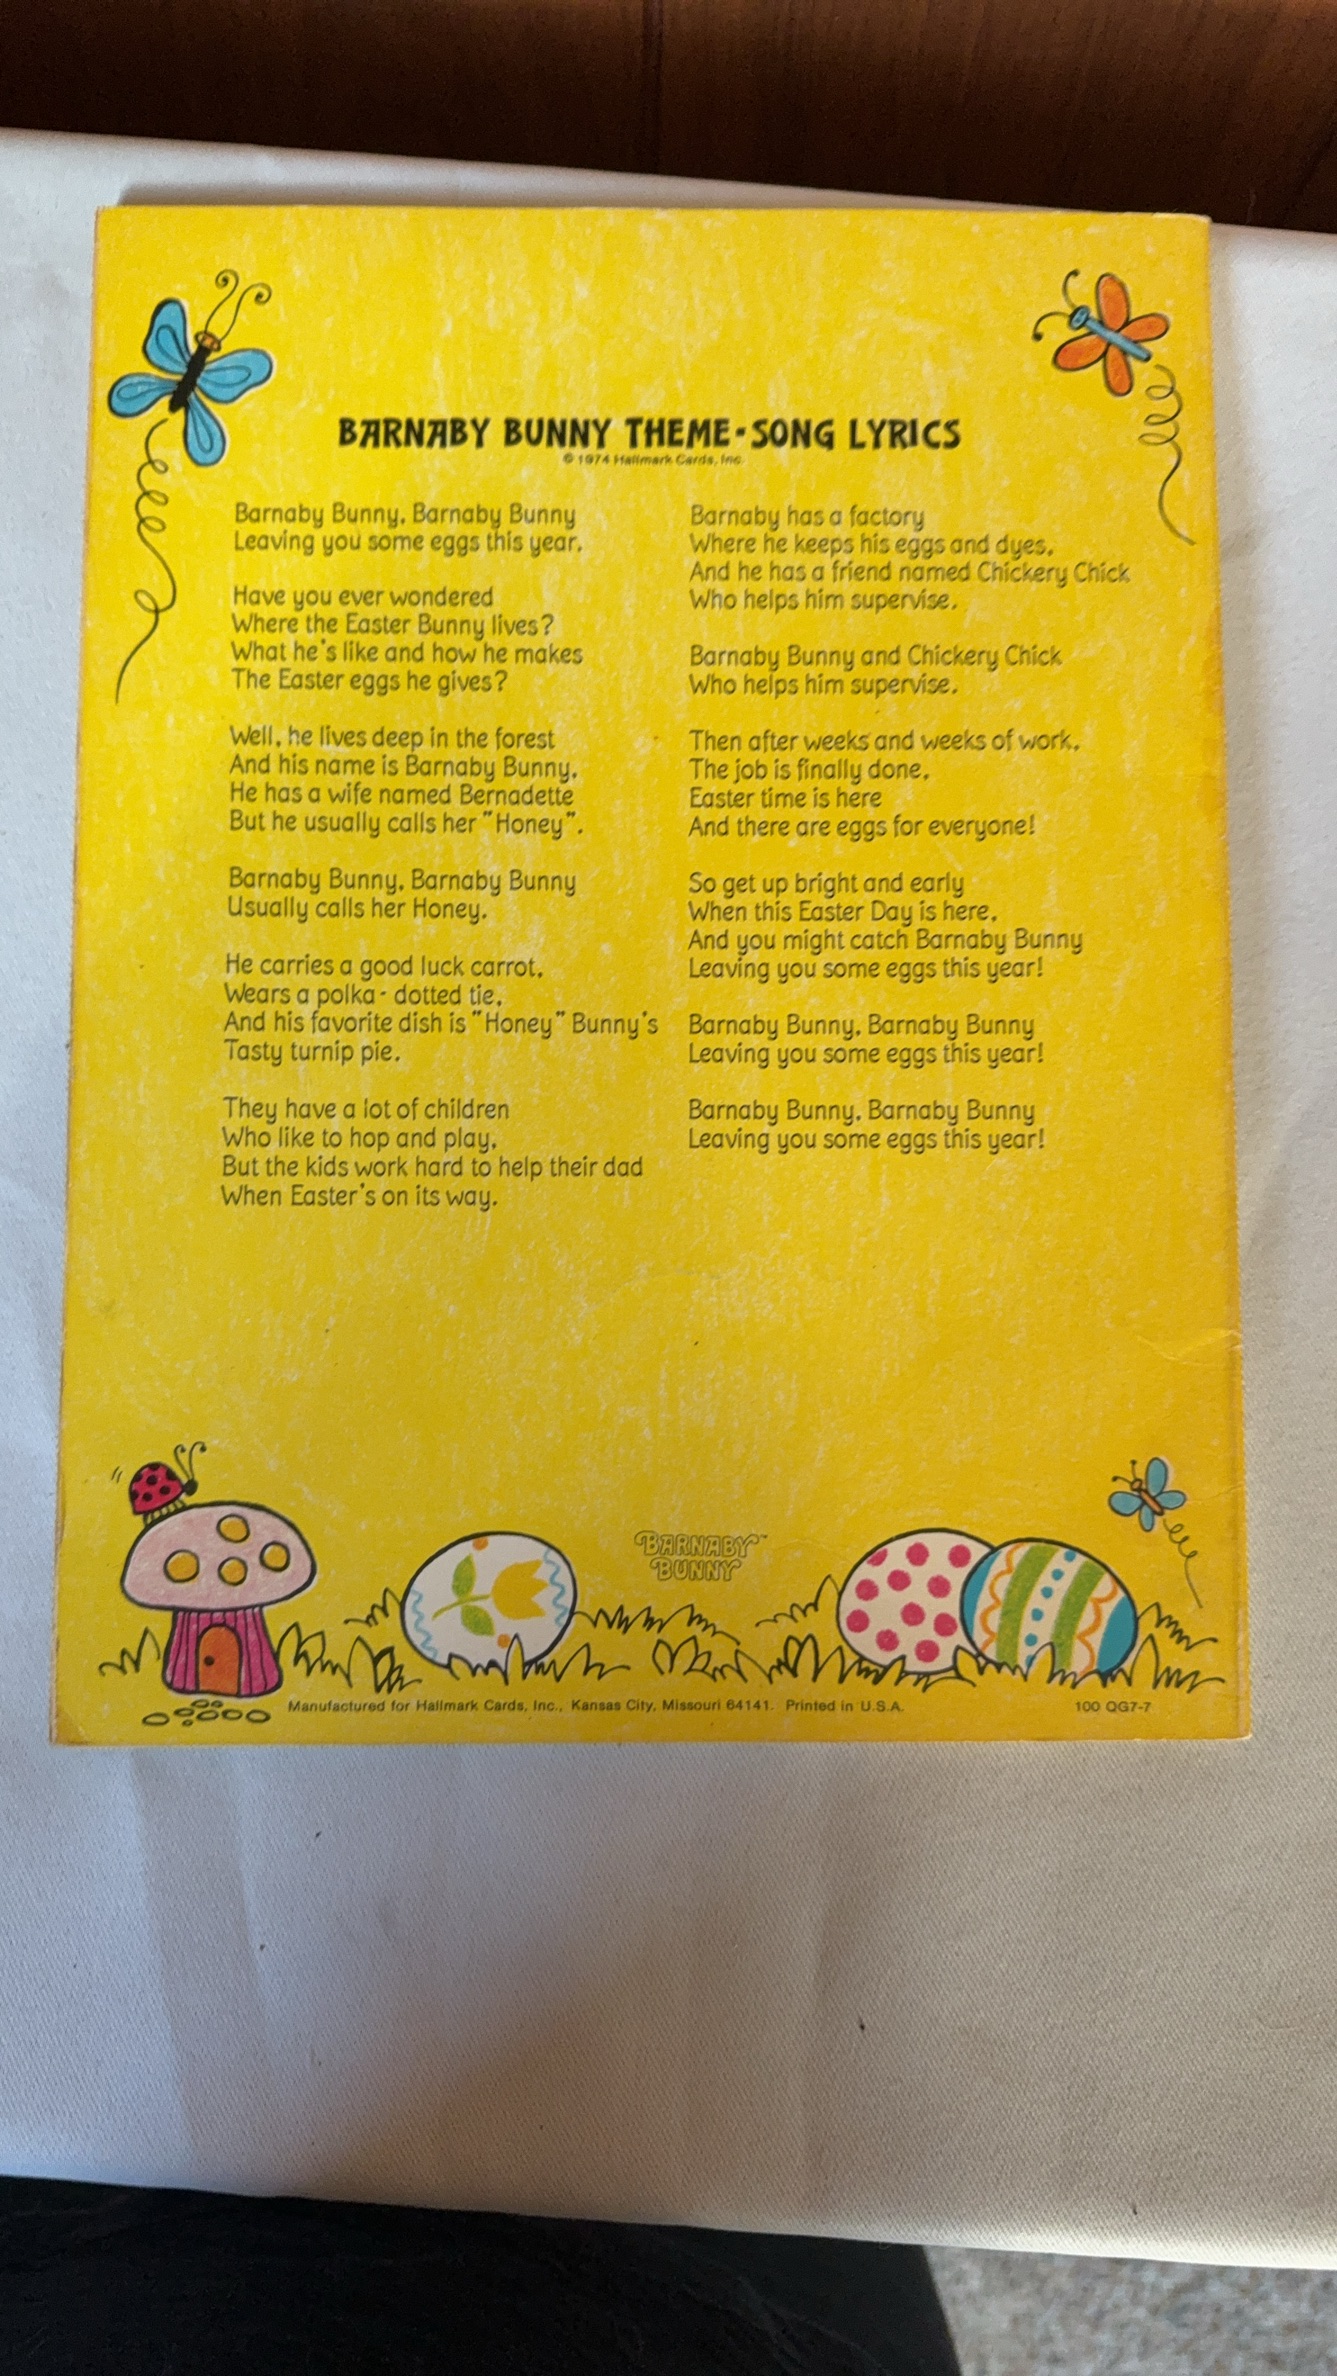 BARNABY BUNNY THEME-SONG LYRICS
© 1974 Hallmark Cards, Inc.
Barnaby Bunny, Barnaby Bunny
Leaving you some eggs this year.
Have you ever wondered
Where the Easter Bunny lives?
What he's like and how he makes
The Easter eggs he gives?
Well, he lives deep in the forest
And his name is Barnaby Bunny,
He has a wife named Bernadette
But he usually calls her "Honey".
Barnaby Bunny, Barnaby Bunny
Usually calls her Honey.
He carries a good luck carrot,
Wears a polka - dotted tie,
And his favorite dish is "Honey" Bunny's
Tasty turnip pie.
They have a lot of children
Who like to hop and play,
But the kids work hard to help their dad
When Easter's on its way.
Barnaby has a factory
Where he keeps his eggs and dyes,
And he has a friend named Chickery Chick
Who helps him supervise.
Barnaby Bunny and Chickery Chick
Who helps him supervise.
Then after weeks and weeks of work,
The job is finally done,
Easter time is here
And there are eggs for everyone!
So get up bright and early
When this Easter Day is here,
And you might catch Barnaby Bunny
Leaving you some eggs this year!
Barnaby Bunny, Barnaby Bunny
Leaving you some eggs this year!
Barnaby Bunny, Barnaby Bunny
Leaving you some eggs this year!
BARNABY™
BUNNY
Manufactured for Hallmark Cards, Inc., Kansas City, Missouri 64141. Printed in U.S.A.
100 QG7-7